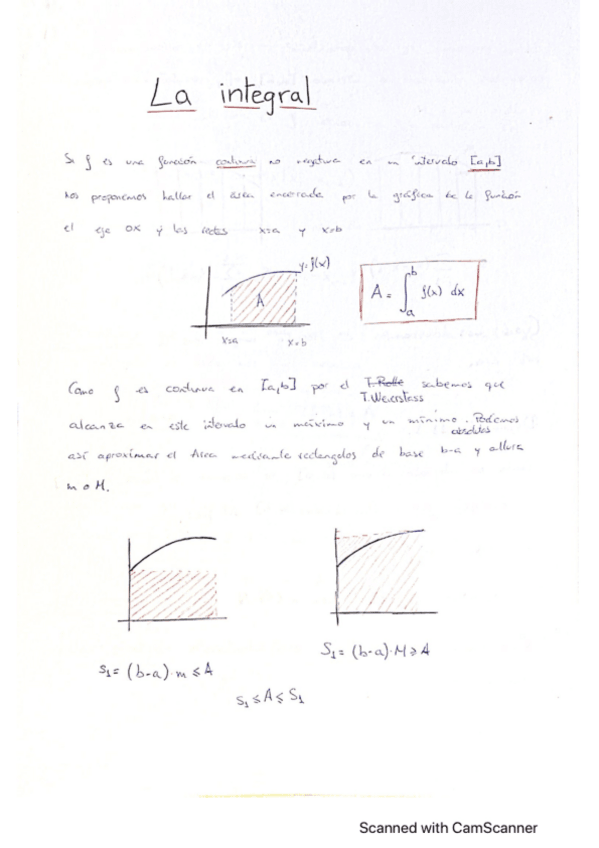 La integral
Si f es una función continua no negativa en un intervalo [a,b]
nos proponemos hallar el área encerrada por la gráfica de la función
el eje OX y las rectas x=a y x=b
y=f(x)
A
x=a
x=b
A = ∫_a^b f(x) dx
Como f es continua en [a,b] por el T.Rolle sabemos que
T.Weierstrass
alcanza en este intervalo un máximo y un mínimo. Podemos
absolutos
así aproximar el Area mediante rectángulos de base b-a y altura
m o M.
s₁ = (b-a)·m ≤ A
S₁ = (b-a)·M ≥ A
s₁ ≤ A ≤ S₁
Scanned with CamScanner